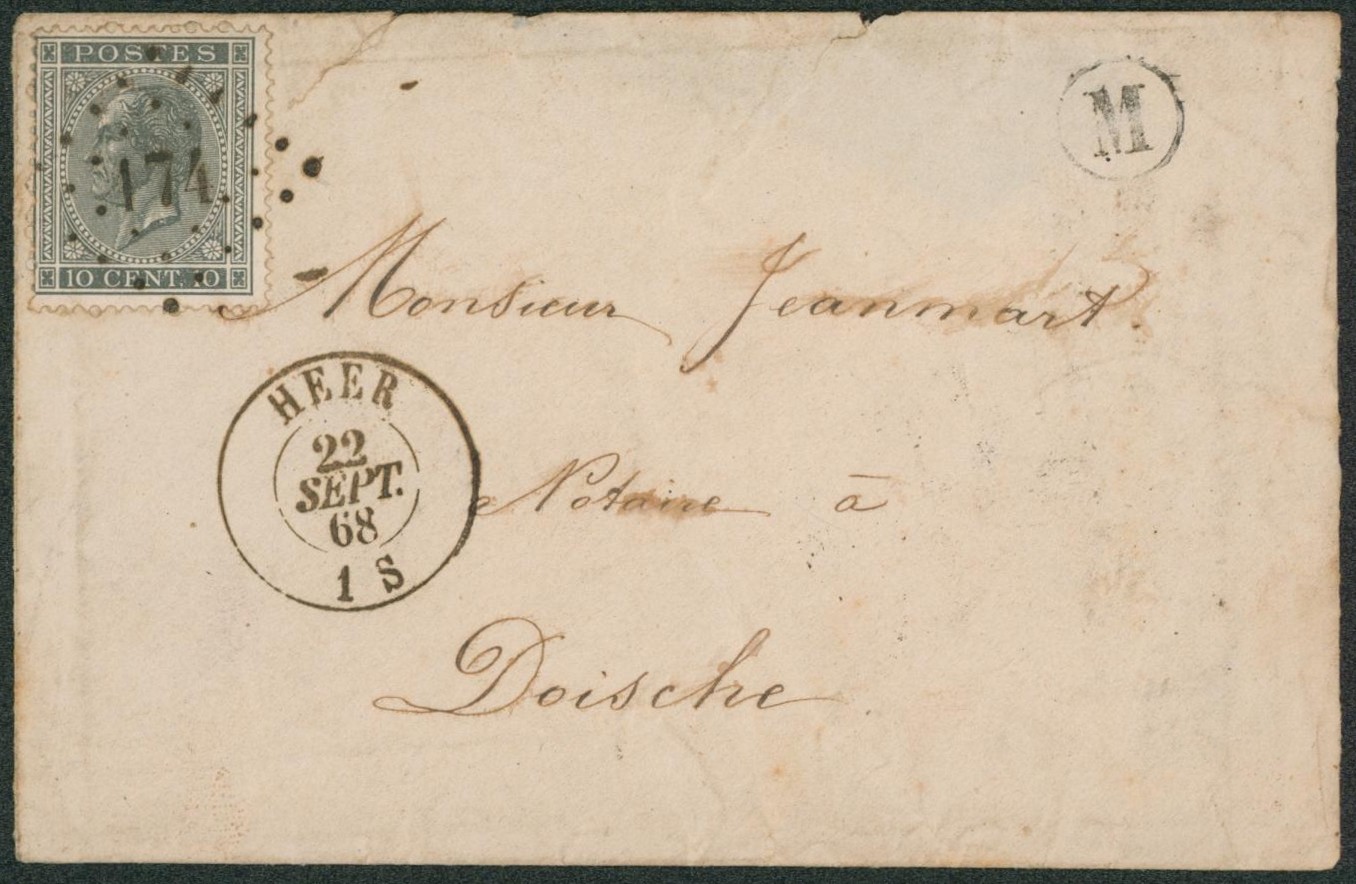 POSTES
174
10 CENT. 10
M
Monsieur Jeanmart.
HEER
22
SEPT.
68
1 S
Notaire à
Doische